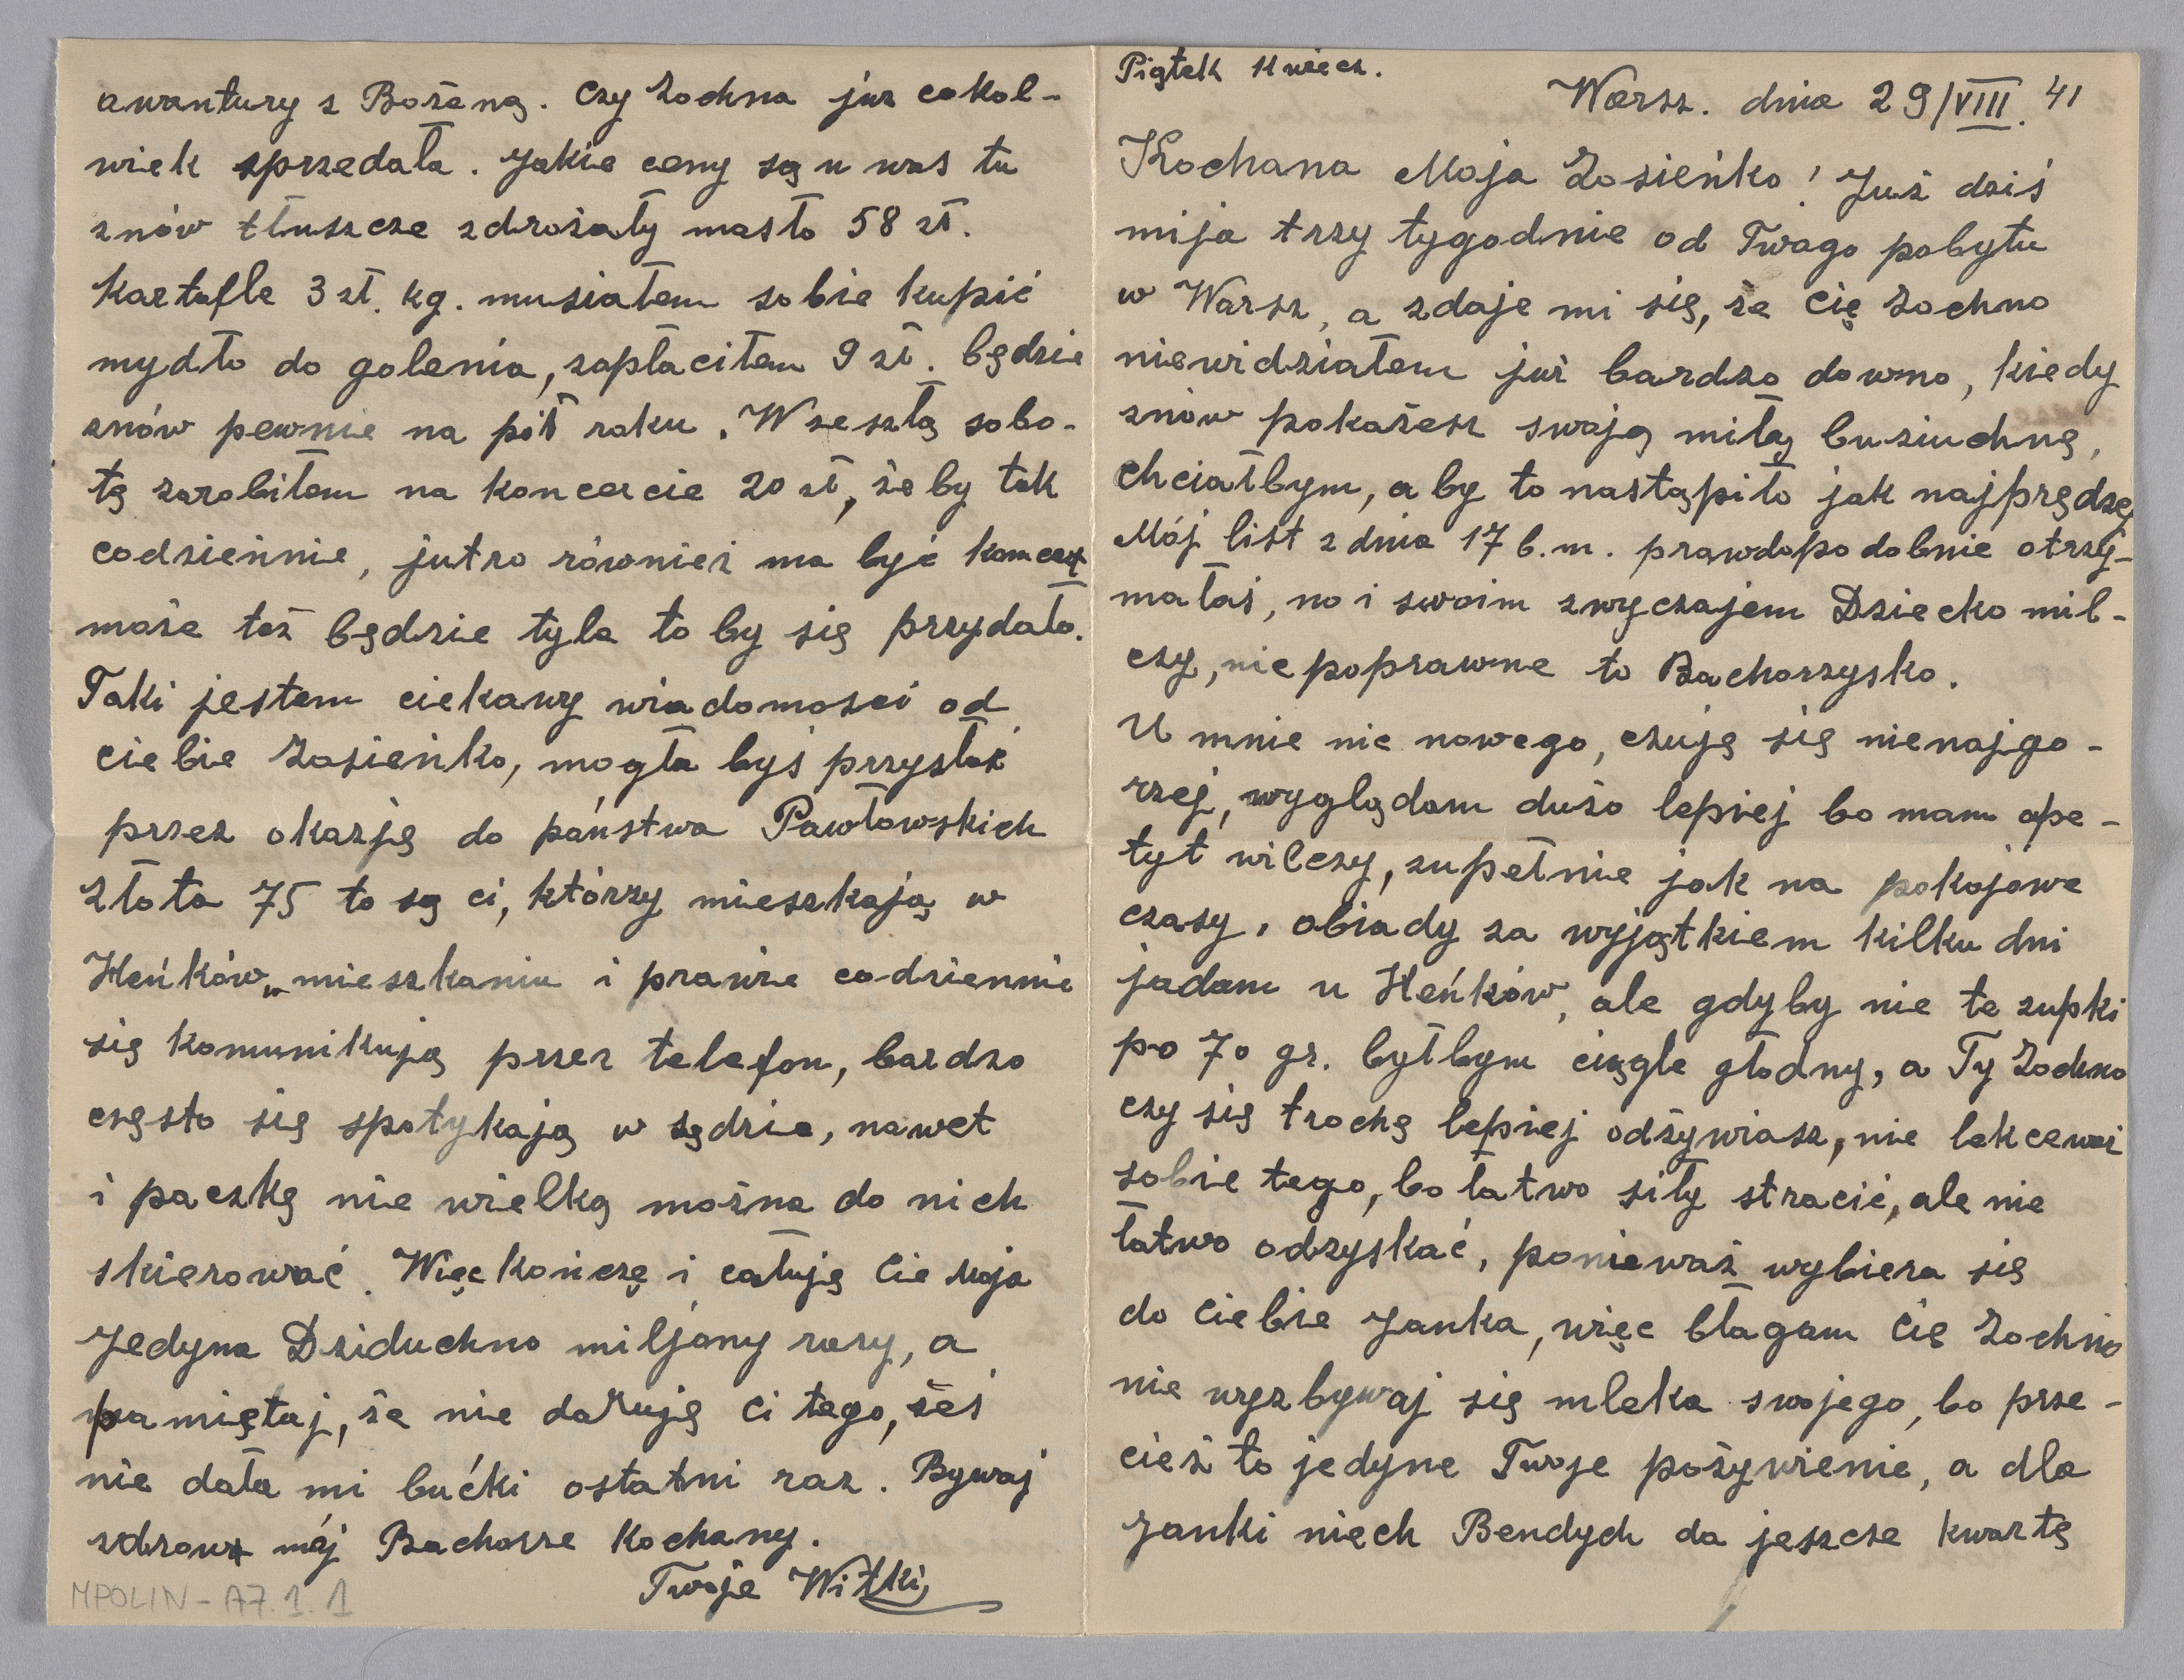 Piątek wiecz.
Warsz. dnia 29/VIII. 41
Kochana Moja Zosieńko! Już dziś
mija trzy tygodnie od Twego pobytu
w Warsz, a zdaje mi się, że Cię Zochno
niewidziałem już bardzo dawno, kiedy
znów pokażesz swoją miłą buziuchnę,
chciałbym, aby to nastąpiło jak najprędzej
Mój list z dnia 17 b.m. prawdopodobnie otrzy-
małaś, no i swoim zwyczajem Dziecko mil-
czy, niepoprawne to Bachorzysko.
U mnie nic nowego, czuję się nienajgo-
rzej, wyglądam dużo lepiej bo mam ape-
tyt wilczy, zupełnie jak na pokojowe
czasy, obiady za wyjątkiem kilku dni
jadam u Heńków, ale gdyby nie te zupki
po 70 gr. byłbym ciągle głodny, a Ty Zochno
czy się trochę lepiej odżywiasz, nie lekceważ
sobie tego, bo łatwo siły stracić, ale nie
łatwo odzyskać, ponieważ wybiera się
do Ciebie Janka, więc błagam Cię Zochno
nie wyzbywaj się mleka swojego, bo prze-
cież to jedyne Twoje pożywienie, a dla
Janki niech Bendych da jeszcze kwartę
awantury z Bożeną. Czy Zochna już cokol-
wiek sprzedała. Jakie ceny są u was tu
znów tłuszcze zdrożały masło 58 zł.
Kartofle 3 zł. kg. musiałem sobie kupić
mydło do golenia, zapłaciłem 9 zł. będzie
znów pewnie na pół roku. W zeszłą sobo-
tę zarobiłem na koncercie 20 zł, żeby tak
codziennie, jutro również ma być koncert
może też będzie tyle to by się przydało.
Taki jestem ciekawy wiadomości od
ciebie Zosieńko, mogła byś przysłać
przez okazję do państwa Pawłowskich
Złota 75 to są ci, którzy mieszkają w
Heńków „ mieszkaniu i prawie codziennie
się komunikują przez telefon, bardzo
często się spotykają w sądzie, nawet
i paczkę nie wielką można do nich
skierować. Więc kończę i całuję Cie Moja
Jedyna Dziduchno miljony razy, a
pamiętaj, że nie daruję Ci tego, żeś
nie dała mi bućki ostatni raz. Bywaj
zdrowa mój Bachorze Kochany.
Twoje Witki
MPOLIN-A7.1.1